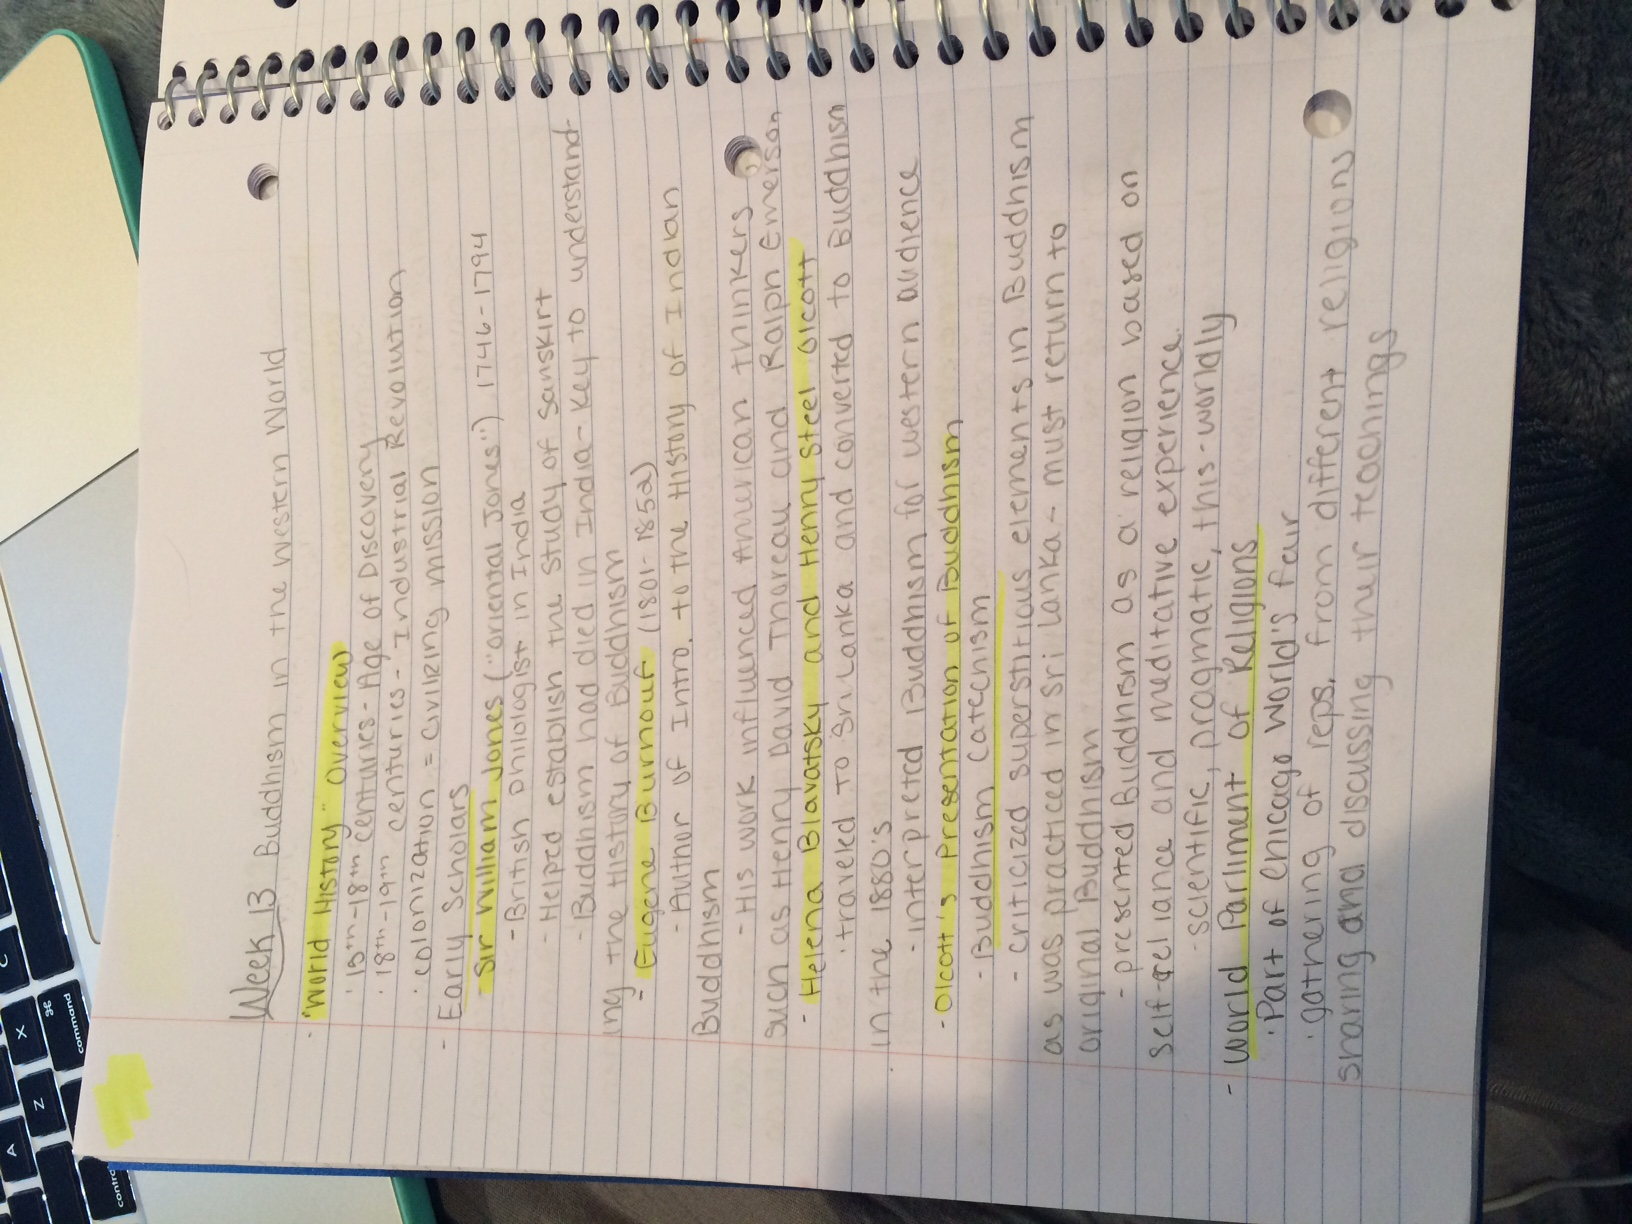 Week 13 Buddhism in the Western World
- "World History" Overview
· 15th-18th centuries - Age of Discovery
· 18th-19th centuries - Industrial Revolution
· colonization = civilizing mission
- Early Scholars
- Sir William Jones ("oriental Jones") 1746-1794
- British philologist in India
- Helped establish the study of Sanskirt
- Buddhism had died in India - Key to understand-
ing the History of Buddhism
- Eugene Burnouf (1801-1852)
- Author of Intro. to the History of Indian
Buddhism
- His work influenced American thinkers
such as Henry David Thoreau and Ralph Emerson
- Helena Blavatsky and Henry Steel Olcott
· traveled to Sri Lanka and converted to Buddhism
in the 1880's
· interpreted Buddhism for western audience
- Olcott's Presentation of Buddhism
- Buddhism Catechism
- criticized superstitious elements in Buddhism
as was practiced in Sri Lanka - must return to
original Buddhism
- presented Buddhism as a religion based on
self-reliance and meditative experience
- scientific, pragmatic, this-worldly
- World Parliment of Religions
· Part of Chicago World's fair
· gathering of reps. from different religions
sharing and discussing their teachings
command
⌘
X
Z
A
C
contro